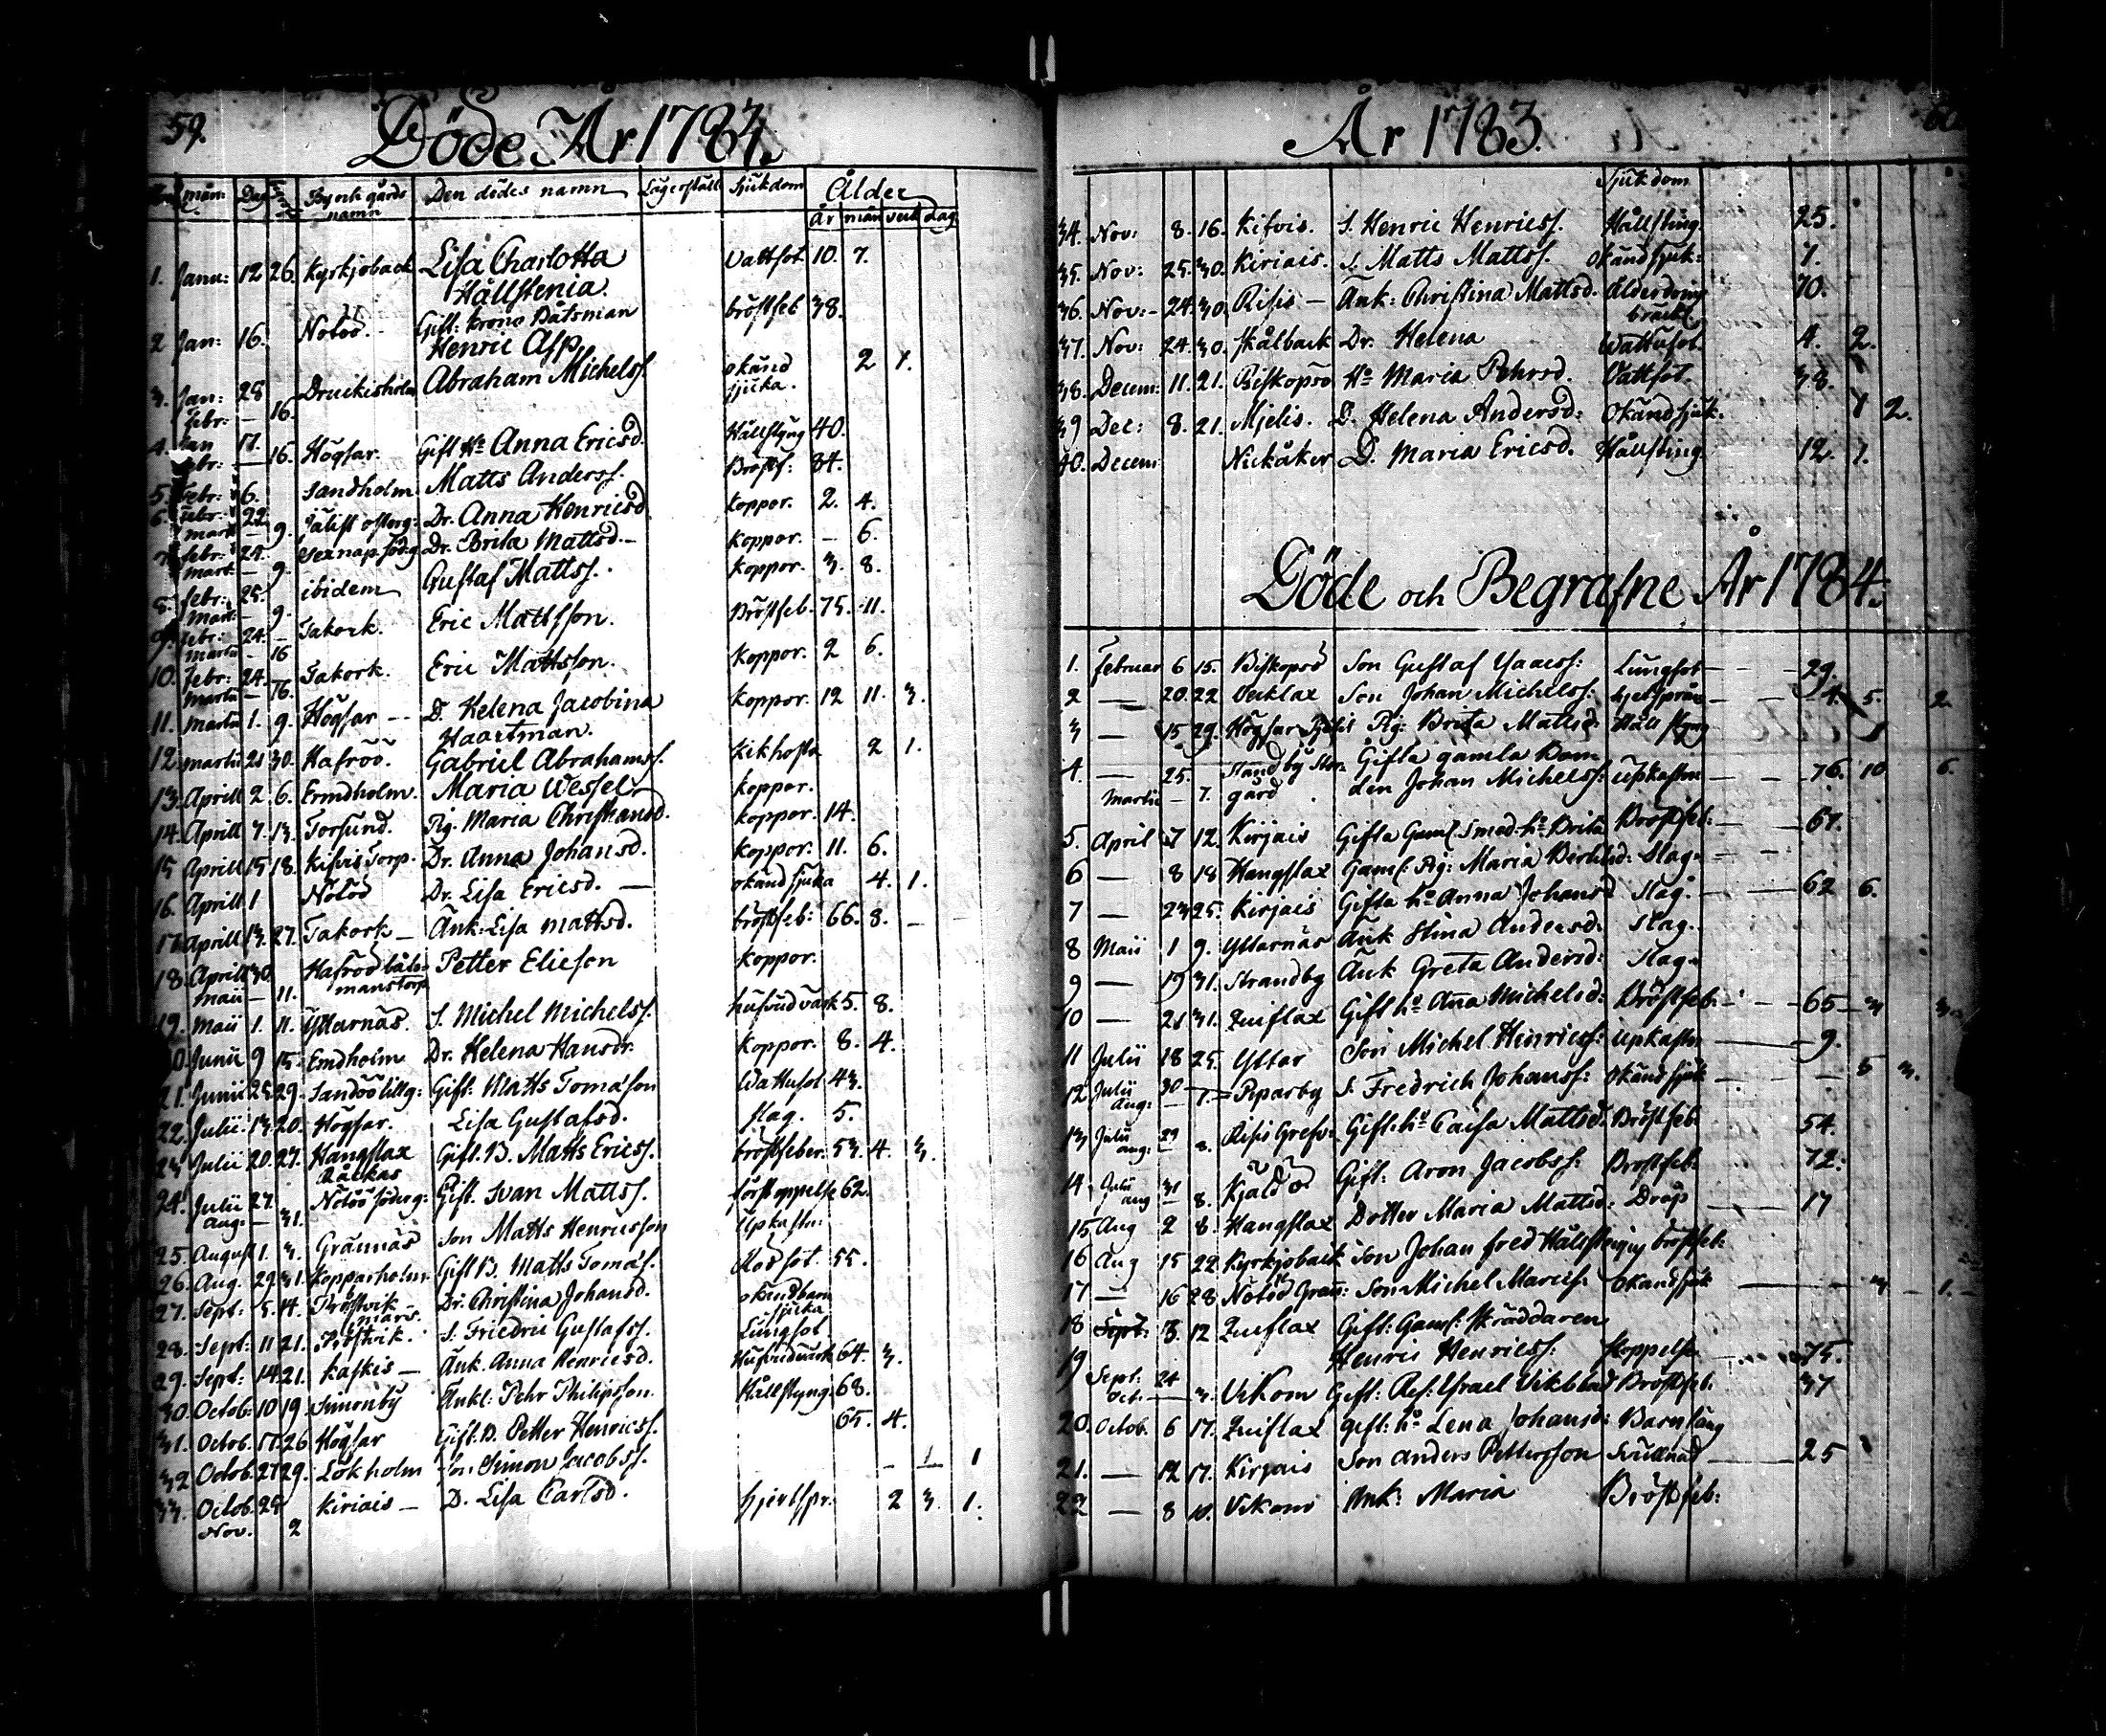 59.
Döde År 1783.
mån: Dag Byoch gårds namn Den dödes namn Lägerställe Sjukdom Ålder
år mån veck dag
1. Janu: 12 26. Kyrkjoback Lisa Charlotta Hällstenia. Vattsot 10. 7.
2 Jan: 16. Nötöö. Gift: krono Båtsman Henric Asp bröstfeb 38.
3. Jan: 28 Druckisholm Abraham Michelss. okänd sjuka. 2 1.
febr: — 16.
4. Jan 17. Högsar. Gift Ho Anna Ericsd. Hållstyng 40.
febr: — 16.
5. Febr: 6. Sandholm Matts Anderss. Bröstf: 84.
6. febr: 22. Dr. Anna Henricsd. koppor. 2. 4.
mart — 9.
7. febr: 24. Dr. Brita Mattsd. — koppor. — 6.
mart: — 9.
8. febr: 25. ibidem Gustaf Mattss. koppor. 3. 8.
Mart: — 9.
9. febr: 24. — Takork. Eric Mattsson. Bröstfeb. 75. 11.
martii — 16
10. Febr: 24. Takork. Eric Mattsson. Koppor. 2 6.
martii — 16.
11. Martii 1. 9. Högsar — D. Helena Jacobina Haartman. koppor. 12 11. 3.
12. martii 21 30. Hafröö. Gabriel Abrahamss. kikhosta 2 1.
13. Aprill 2 6. Ermdholm. Maria Wessel koppor.
14. Aprill 7. 13. Torsund. Pig. Maria Christiansd. koppor. 14.
15 Aprill 15 18. Kifvis Torp. Dr. Anna Johansd. koppor: 11. 6.
16. Aprill 1 Nötöö Dr. Lisa Ericsd. — okänd sjuka 4. 1.
17. Aprill 13. 27. Takork — Änk: Lisa mattsd. bröstfeb: 66. 8. —
18. Aprill 30. Hafröö båtsmanstorp Petter Elieson koppor.
Maii — 11.
19. Maii 1. 11. Yttarnäs. S. Michel Michelss. hufvudvärk 5. 8.
20. Junii 9 15. Emdholm Dr. Helena Hansdr. koppor. 8. 4.
21. Junii 25 29. Sandöö lillg: Gift. Matts Tomasson Wattusot 43.
22. Julii 13. 20. Högsar. Lisa Gustafsd. slag. 5.
23 Julii 20. 27. Hangslax Gift. B. Matts Ericss. bröstfeber. 53. 4. 3.
24. Julii 27. Nötöö söderg: Gift. Ivan Mattss. förstoppelse 62.
aug: — 31.
25. August 1. 3. Grännäs Son Matts Henricsson Upkastn:
26. Aug. 29 31. Kopparholm. Gift B. Matts Tomass. Rödsot. 55.
27. Sept: 5. 14. Pröstvik Dr. Christina Johansd. okänd barnsjuka
28. Sept: 11 21. Pröstvik. S. Friedric Gustafss. Lungsot
29. Sept: 14 21. Kaskis — Änk. Anna Henricsd. Hufvudvärk 64. 3.
30. Octob: 10 19. Simonby Änkl: Pehr Philipsson. Hållstyng: 68.
31. Octob. 17. 26. Högsar Gift. B. Petter Henricss. 65. 4.
32 Octob. 27 29. Lökholm Son Simon Jacobss. — 1 1
33. Octob. 29 Kiriais — D. Lisa Carlsd. hjertspr. 2 3. 1.
Nov. 2
År 1783.
Sjukdom
34. Nov: 8. 16. Kifvis. S. Henric Henricss. Hållsting 25.
35. Nov: 25. 30. Kiriais. S. Matts Mattss. Okänd sjuk: 7.
36. Nov: — 24. 30. Risis — Änk: Christina Mattsd. Ålderdoms bräckl. 70.
37. Nov: 24. 30. Skålback Dr. Helena Wattusot. 4. 2.
38. Decem: 11. 21. Biskopsö Ho Maria Pehrsd. Vattsot. 38.
39 Dec: 8. 21. Mjelis. D. Helena Andersd: Okänd sjuk. 1 2.
40. Decem: Nickåker D. Maria Ericsd. Hållsting 12. 1.
Döde och Begrafne År 1784.
1. Februar 6 15. Biskopsö Son Gustaf Isaacss: Lungsot — 29.
2 — 20. 22 Vecklax Son Johan Michelss: hjertsprån — 4. 5. 2.
3 — 15 29. Högsar Pig: Brita Mattsd. Håll styng 1
4. — 25. Strandby Storgård Gifta gamla Bonden Johan Michelss: upkastn — 76. 10 6.
Martii — 7.
5. April 7 12. Kirjais Gifta Gaml. Smed ho Brita Bröstfeb: — 67.
6 — 8 18 Hangslax Gaml: Pig: Maria Slag.
7 — 23 25. Kirjais Gifta ho Anna Johansd Slag. — 62 6.
8 Maii 1 9. Yttarnäs Änk Stina Andersd. Slag.
9 — 19 31. Strandby Änk Greta Andersd: Slag.
10 — 21 31. Zuiflax Gift ho Anna Michelsd: Bröstfeb. — 65 — 3 3.
11 Julii 18 25. Yttar Son Michel Henricss: Upkastn — 9.
12 Julii 30 — Piparby S. Fredrich Johanss: Okänd sjuk — 5 3.
Aug: — 7.
13 Julii 29 Gift. ho Caisa Mattsd. Bröstfeb. 54.
aug: — 8.
14 Julii 31 Kjäldö Gift: Aron Jacobss: Bröstfeb: 72.
aug — 8.
15 Aug 2 8. Hangslax Dotter Maria Mattsd: Dråp — 17
16 Aug 15 22 Kyrkjoback Son Johan fred Hällsteniy bröstfeb:
17 — 16 28 Nötöö Grän: Son Michel Maricss. Okänd sjuk — 3 — 1. —
18 Sept: 8. 12 Zuiflax Gift: Gaml: Skräddaren Henric Henricss: stoppelse — 75.
19 Sept: 24 Vikom Gift: Ref. Israel Vikblad Bröstfeb. 37
Oct. — 3.
20. Octob. 6 17. Zuiflax Gift: ho Lena Johansd: Barnsäng
21. — 12 17. Kirjais Son Anders Pettersson Svullnad — 25
22 — 8 10. Vikom Änk: Maria Bröstfeb: